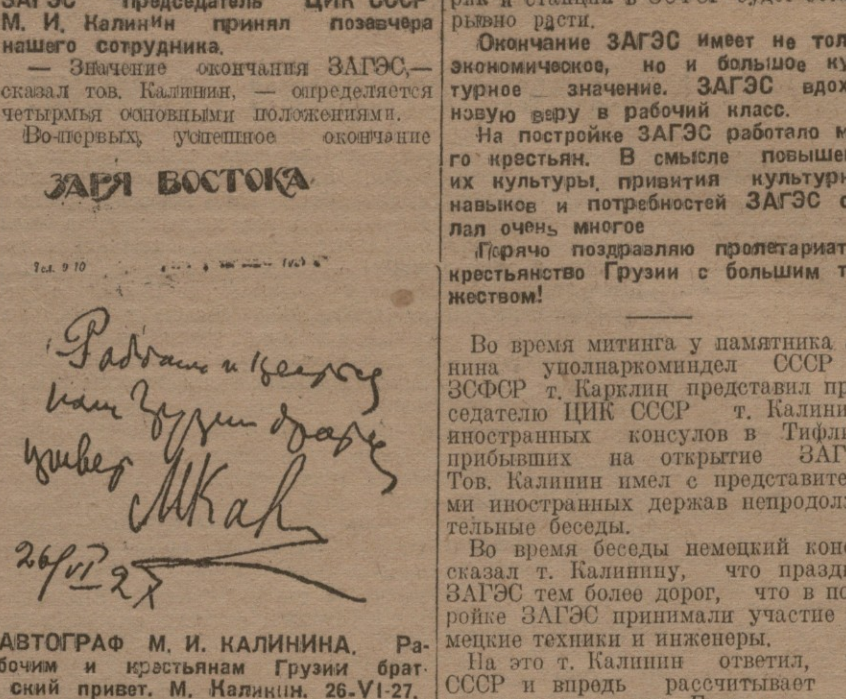 ЗАГЭС Председатель ЦИК СССР
М. И. Калинин принял позавчера
нашего сотрудника.
— Значение окончания ЗАГЭС,—
сказал тов. Калинин, — определяется
четырмья основными положениями.
Во-первых, успешное окончание
ЗАРЯ ВОСТОКА
Рабочим и крестья
нам Грузии братск
привет
МКал
26/VI 27
АВТОГРАФ М. И. КАЛИНИНА. Ра-
бочим и крестьянам Грузии брат-
ский привет. М. Калинин. 26-VI-27.
рывно расти.
Окончание ЗАГЭС имеет не тол
экономическое, но и большое ку
турное значение. ЗАГЭС вдох
новую веру в рабочий класс.
На постройке ЗАГЭС работало м
го крестьян. В смысле повыше
их культуры, привития культурн
навыков и потребностей ЗАГЭС с
лал очень многое
Горячо поздравляю пролетариат
крестьянство Грузии с большим т
жеством!
Во время митинга у памятника
нина уполнаркоминдел СССР
ЗСФСР т. Карклин представил пр
седателю ЦИК СССР т. Калини
иностранных консулов в Тифли
прибывших на открытие ЗАГ
Тов. Калинин имел с представите
ми иностранных держав непродол
тельные беседы.
Во время беседы немецкий конс
сказал т. Калинину, что праздн
ЗАГЭС тем более дорог, что в по
ройке ЗАГЭС принимали участие
мецкие техники и инженеры.
На это т. Калинин ответил,
СССР и впредь рассчитывает